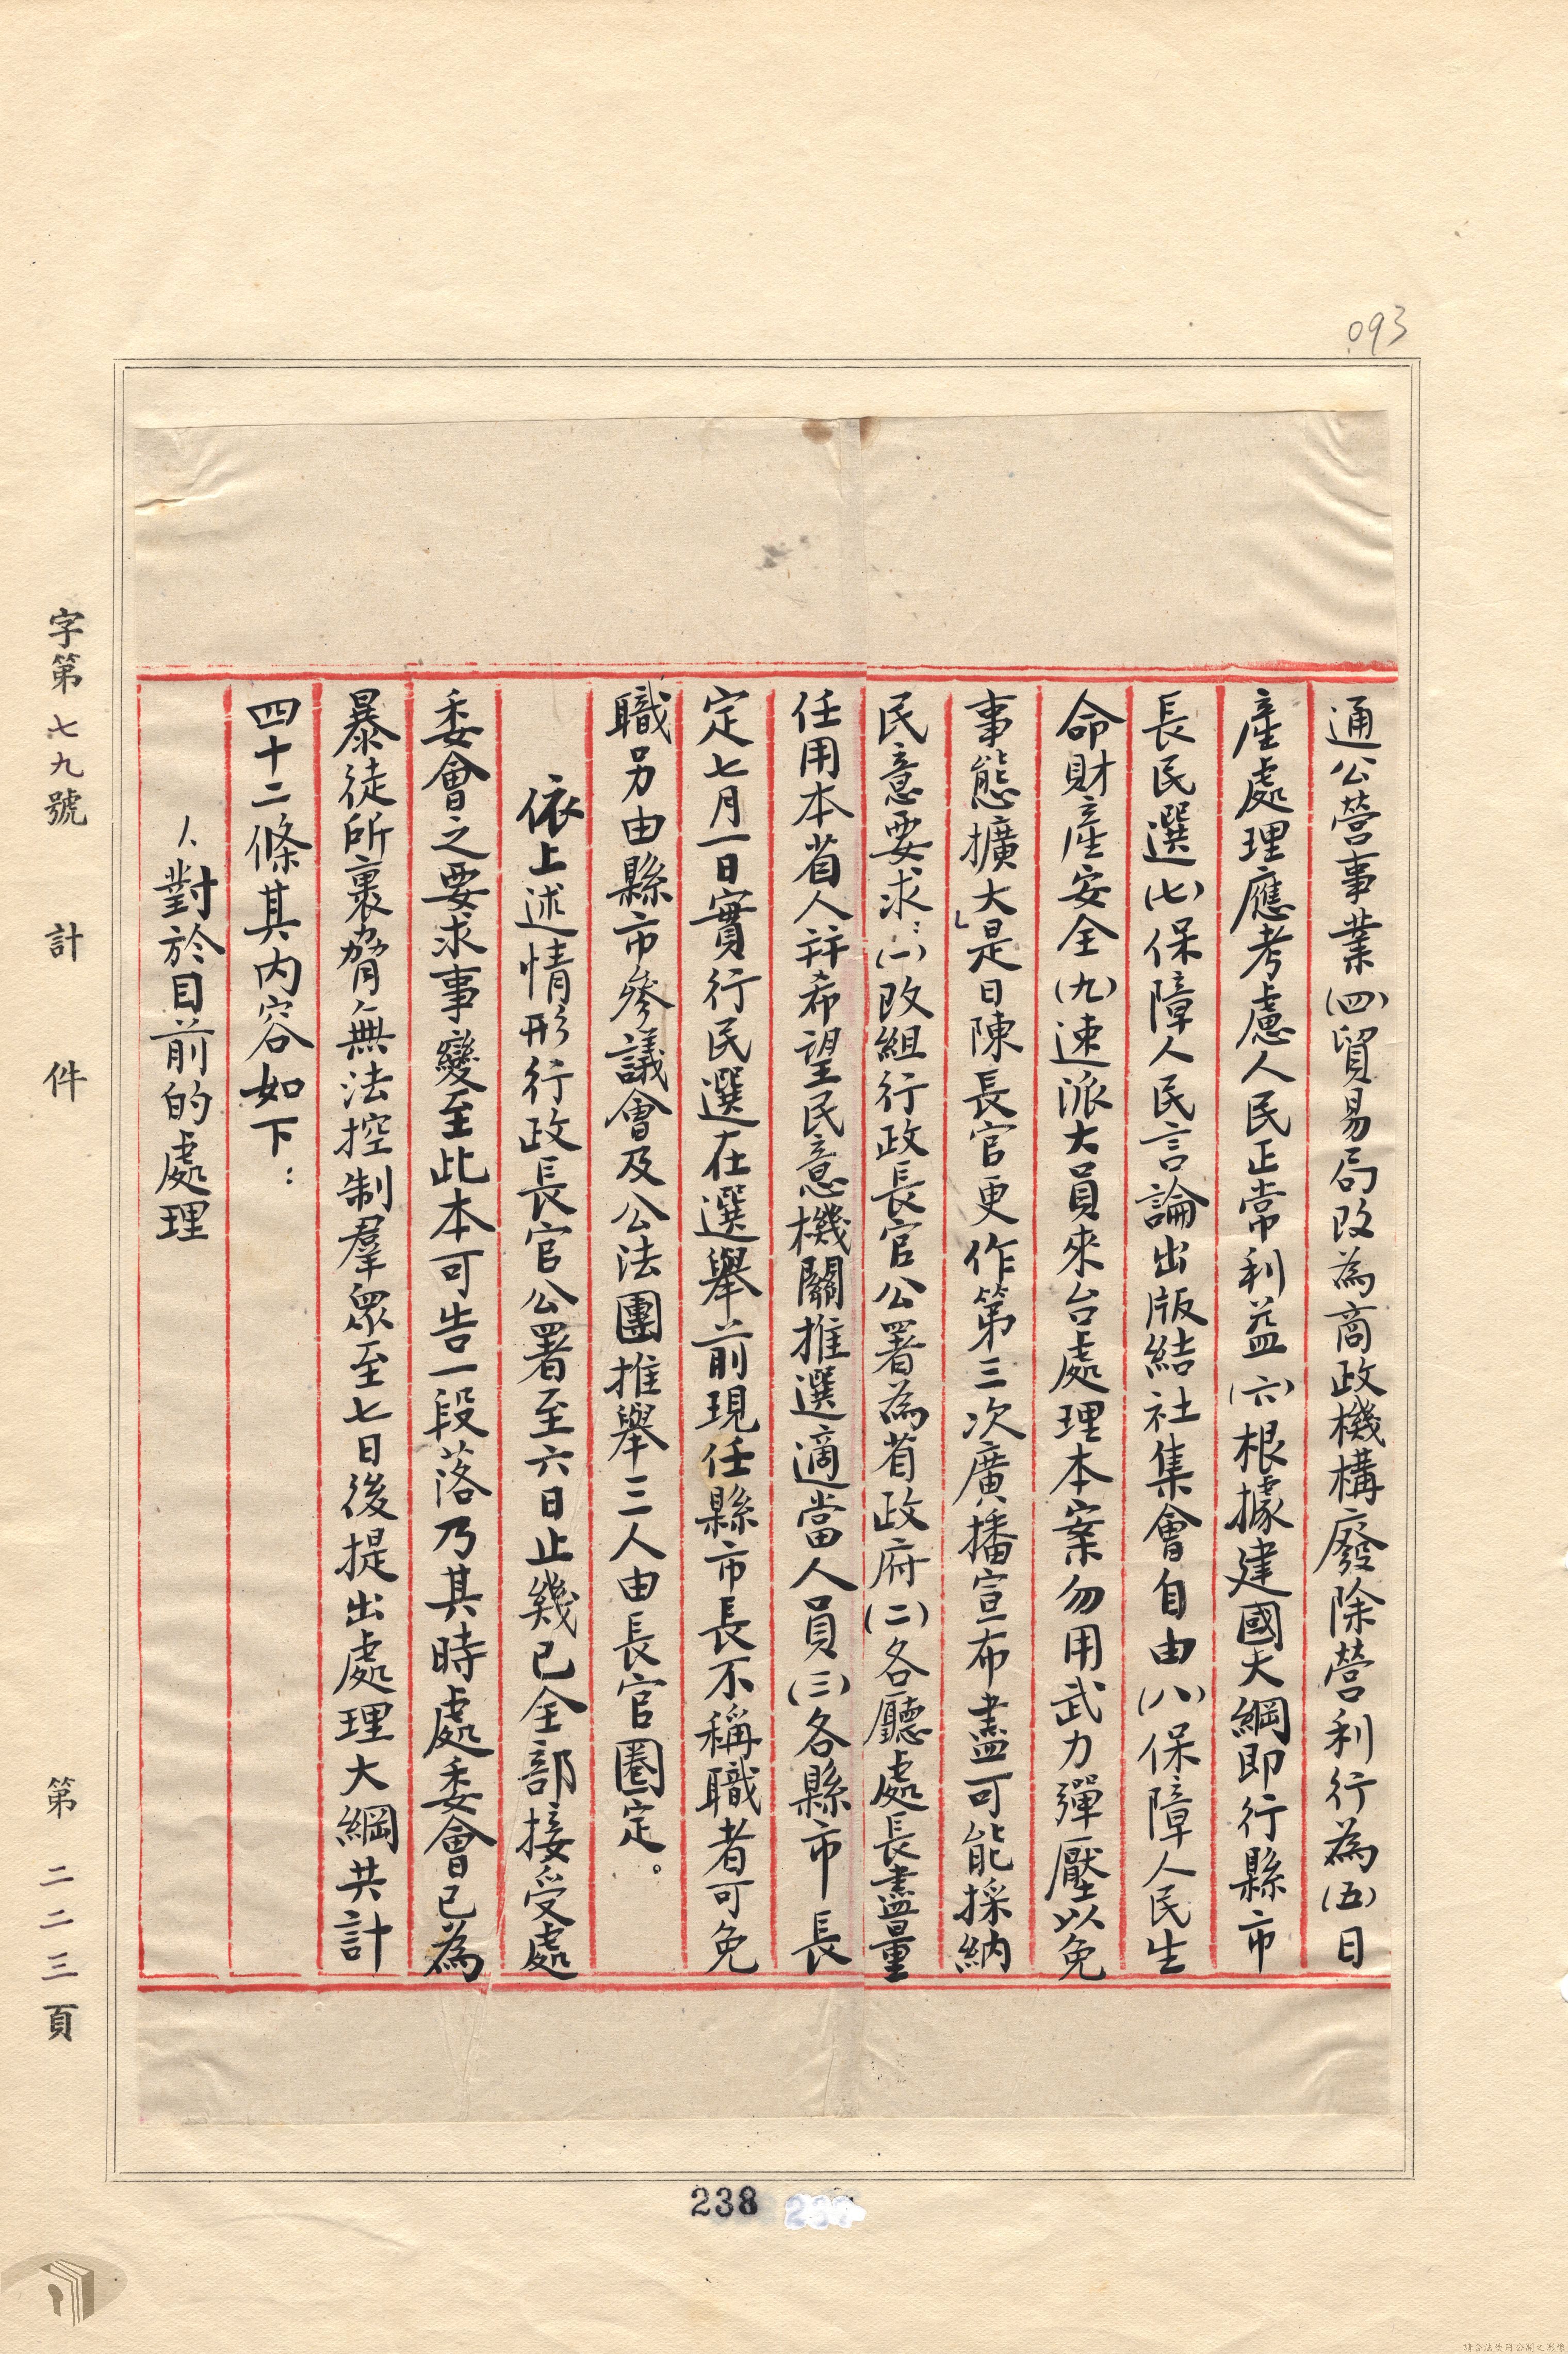 093
通公營事業(四)貿易局改為商政機構廢除營利行為(五)日
產處理應考慮人民正常利益(六)根據建國大綱即行縣市
長民選(七)保障人民言論出版結社集會自由(八)保障人民生
命財產安全(九)速派大員來台處理本案勿用武力彈壓以免
事態擴大」是日陳長官更作第三次廣播宣布盡可能採納
民意要求：(一)改組行政長官公署為省政府(二)各廳處長盡量
任用本省人并希望民意機關推選適當人員(三)各縣市長
定七月一日實行民選在選舉前現任縣市長不稱職者可免
職另由縣市參議會及公法團推舉三人由長官圈定。
依上述情形行政長官公署至六日止幾已全部接受處
委會之要求事變至此本可告一段落乃其時處委會已為
暴徒所裹脅無法控制羣眾至七日後提出處理大綱共計
四十二條其內容如下：
1、對於目前的處理
字第七九號 計 件 第二二三頁
238
請合法使用公開之影像